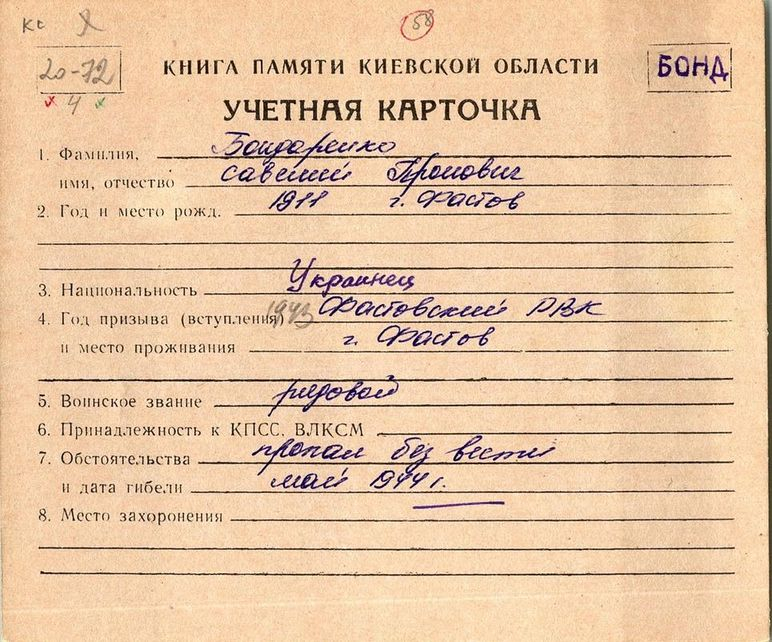 Кс
58
20-72
КНИГА ПАМЯТИ КИЕВСКОЙ ОБЛАСТИ
БОНД
4
УЧЕТНАЯ КАРТОЧКА
1. Фамилия, Бондаренко
имя, отчество Савелий Пропович
2. Год и место рожд. 1911 г. Фастов
3. Национальность Украинец
4. Год призыва (вступления) 1943 Фастовский РВК
и место проживания г. Фастов
5. Воинское звание рядовой
6. Принадлежность к КПСС, ВЛКСМ
7. Обстоятельства пропал без вести
и дата гибели май 1944 г.
8. Место захоронения